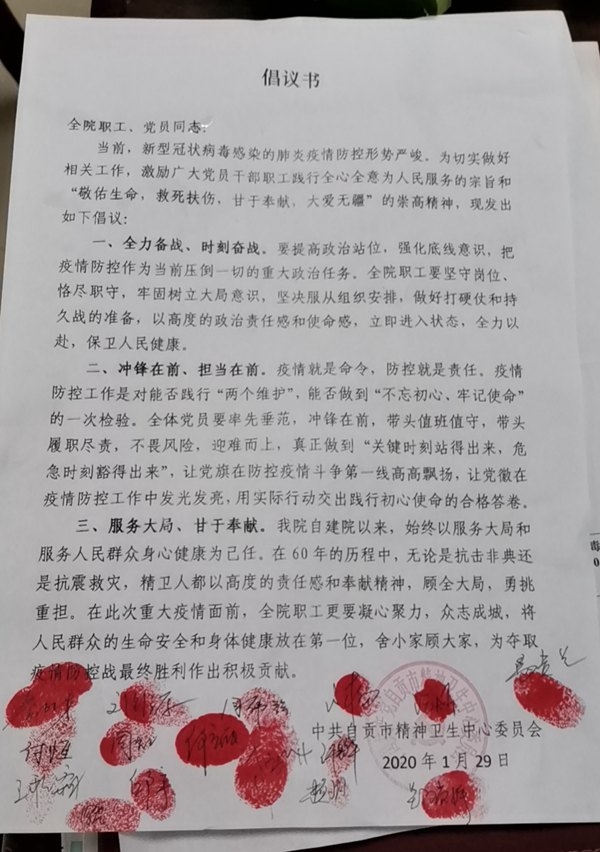 倡议书
全院职工、党员同志：
当前，新型冠状病毒感染的肺炎疫情防控形势严峻。为切实做好
相关工作，激励广大党员干部职工践行全心全意为人民服务的宗旨和
“敬佑生命，救死扶伤，甘于奉献，大爱无疆”的崇高精神，现发出
如下倡议：
一、全力备战、时刻奋战。要提高政治站位，强化底线意识，把
疫情防控作为当前压倒一切的重大政治任务。全院职工要坚守岗位、
恪尽职守，牢固树立大局意识，坚决服从组织安排，做好打硬仗和持
久战的准备，以高度的政治责任感和使命感，立即进入状态，全力以
赴，保卫人民健康。
二、冲锋在前、担当在前。疫情就是命令，防控就是责任。疫情
防控工作是对能否践行“两个维护”，能否做到“不忘初心、牢记使命”
的一次检验。全体党员要率先垂范，冲锋在前，带头值班值守，带头
履职尽责，不畏风险，迎难而上，真正做到“关键时刻站得出来，危
急时刻豁得出来”，让党旗在防控疫情斗争第一线高高飘扬，让党徽在
疫情防控工作中发光发亮，用实际行动交出践行初心使命的合格答卷。
三、服务大局、甘于奉献。我院自建院以来，始终以服务大局和
服务人民群众身心健康为己任。在60年的历程中，无论是抗击非典还
是抗震救灾，精卫人都以高度的责任感和奉献精神，顾全大局，勇挑
重担。在此次重大疫情面前，全院职工更要凝心聚力，众志成城，将
人民群众的生命安全和身体健康放在第一位，舍小家顾大家，为夺取
疫情防控战最终胜利作出积极贡献。
中共自贡市精神卫生中心委员会
2020年1月29日